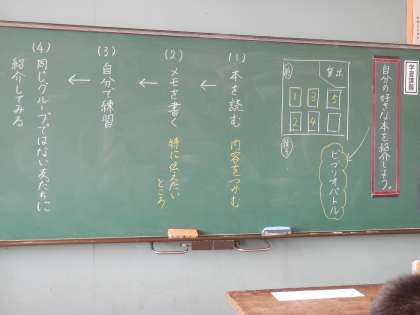 学習課題
自分の好きな本を紹介しよう。
ビブリオバトル
貸出
1 3 5
2 4
(1) 本を読む 内容をつかむ
←
(2) メモを書く 特に伝えたい
ところ
←
(3) 自分で練習
←
(4) 同じグループではない友だちに
紹介してみる